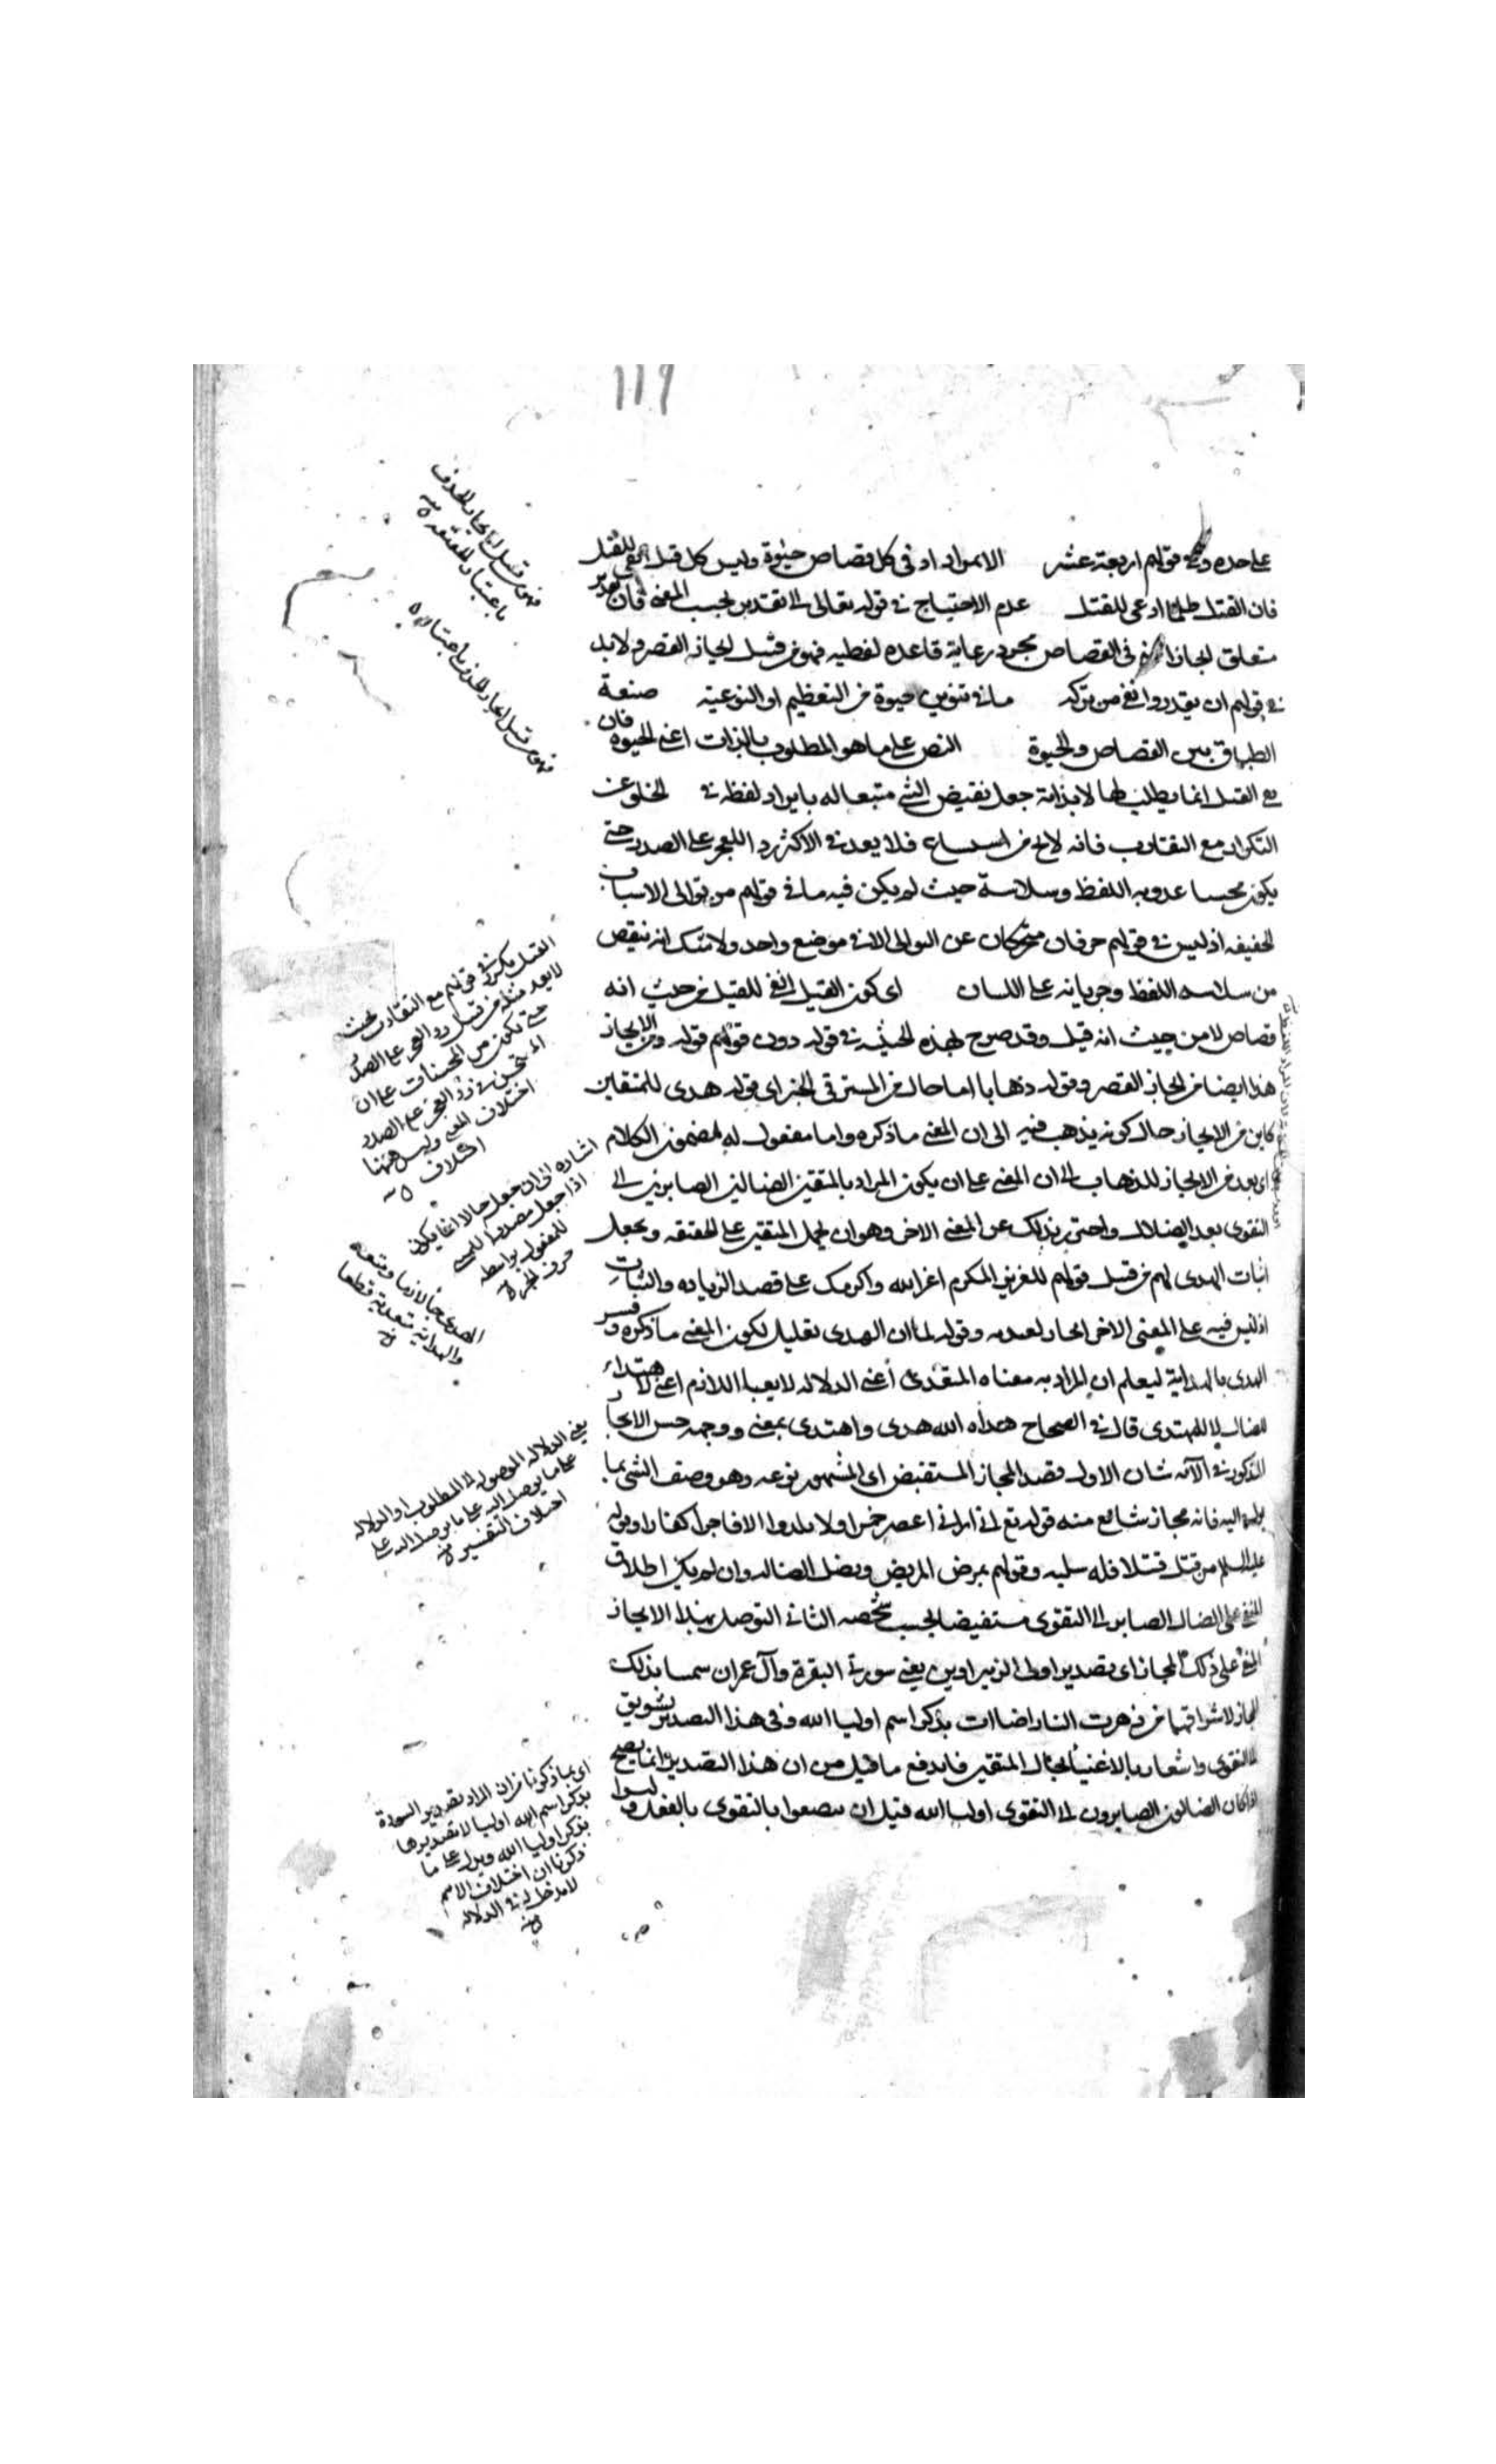 119
على حده وفي قولهم اربعة عشر الاطراد اذ فى كل قصاص حيوة وليس كل قتل انفى للقتل
فان القتل ظلما ادعى للقتل عدم الاحتياج فى قوله تعالى الى تقدير بحسب المعنى فان تقدير
متعلق الجار فى القصاص مجرد رعاية قاعده لفطيه فهو من قبيل ايجاز القصر ولا بد
فى قولهم ان يقدر وانفى من تركه ما فى تنوين حيوة من التعظيم او النوعية صنعة
الطباق بين القصاص والحيوة النص على ما هو المطلوب بالذات اعنى الحيوة فان
نفى القتل انما يطلب لها لا لذاته جعل نقيض الشئ متبعا له بايراد لفظه فى الخلو عن
التكرار مع التقارب فانه لا يخ من فلا يعد فى الاكثر رد العجز على الصدر حتى
يكون محسنا عذوبه اللفظ وسلاسة حيث لم يكن فيه ما فى قولهم من توالى الاسباب
الخفيفه اذ ليس فى قولهم حرفان متحركان على التوالى الا فى موضع واحد ولا شك انه ينقص
من سلاسه اللفظ وجريانه على اللسان اى كون القتل انفى للقتل من حيث انه
قصاص لا من حيث انه قتل وقد صرح بهذه الحيثيه فى قوله دون قولهم قوله ومن الايجاز
هذا ايضا من ايجاز القصر وقوله ذهابا اما حال من المستتر فى الخبر اى قوله هدى للمتقين
كاين من الايجاز حال كونه يذهب فيه الى ان المعنى ما ذكره واما مفعول له لمضمون الكلام
اى يعد من الايجاز للذهاب الى ان المعنى على ان يكون المراد بالمتقين الضالين الصايرين الى
التقوى بعد الضلال واحترز بذلك عن المعنى الاخر وهو ان يحمل المتقين على الحقيقه ويجعل
اثبات الهدى لهم من قبيل قولهم للعزيز المكرم اعز الله واكرمك على قصد الزياده والثبات
اذ ليس فيه على المعنى الاخر ايجاز وقوله لما ان الهدى تعليل لكون المعنى ما ذكره وفسر
الهدى بالهداية ليعلم ان المراد به معناه المتعدى أعنى الدلاله لا اللازم اعنى الاهتداء
للضال لا للمهتدى قال فى الصحاح هداه الله هدى واهتدى بمعنى ووجه حسن الايجاز
المذكور فى الآيه شان الاول قصد المجاز المستفيض اى المشهور نوعه وهو وصف الشئ بما
يؤل اليه فانه مجاز شائع منه قوله تع انى ارانى اعصر خمرا ولا يلدوا الا فاجرا كفارا وقوله
عليه السلم من قتل قتيلا فله سلبه وقولهم يمرض المريض ويضل الضاله وان لم يكن اطلاق
المتقى على الضال الصاير الى التقوى مستفيضا بحسب شخصه الثانى التوصل بهذا الايجاز
على ذلك المجاز اى تصدير اولى الزهراوين يعنى سورتى البقرة وآل عمران سميا بذلك
لاشراقهما من زهرت النار اضاءت بذكر اسم اوليا الله وفى هذا التصدير تشويق
الى التقوى واشعار بالاعتناء بحال المتقين فاندفع ما قيل من ان هذا التصدير انما يصح
اذا كان الضالون الصايرون الى التقوى اوليا الله قبل ان يتصفوا بالتقوى بالفعل وليسوا
فهو من قبيل ايجاز الحذف
باعتبار
فهو من قبيل ايجاز الحذف باعتبار
القتل مكرر فى قولهم مع التقارب بحيث
لا يعد مثله من قبيل رد العجز على الصدر
حتى تكون من المحسنات على ان
فى رد العجز على الصدر
اختلاف المعنى وليس ههنا
اختلاف
اشاره الى ان جعل حالا انما يكون
اذا جعل مصدرا
للمفعول بواسطه
حرف الجر
والهداية متعدية قطعا
يعنى الدلاله الموصله الى المطلوب او الدلاله
على ما يوصل اليه على
اختلاف التفسير
اى بما ذكرنا من ان المراد تصدير السورة
بذكر اسم الله اوليا لا تصديرها
بذكر اوليا الله ويدل على ما
ذكرنا ان اختلاف الاسم
لا مدخل له فى الدلاله